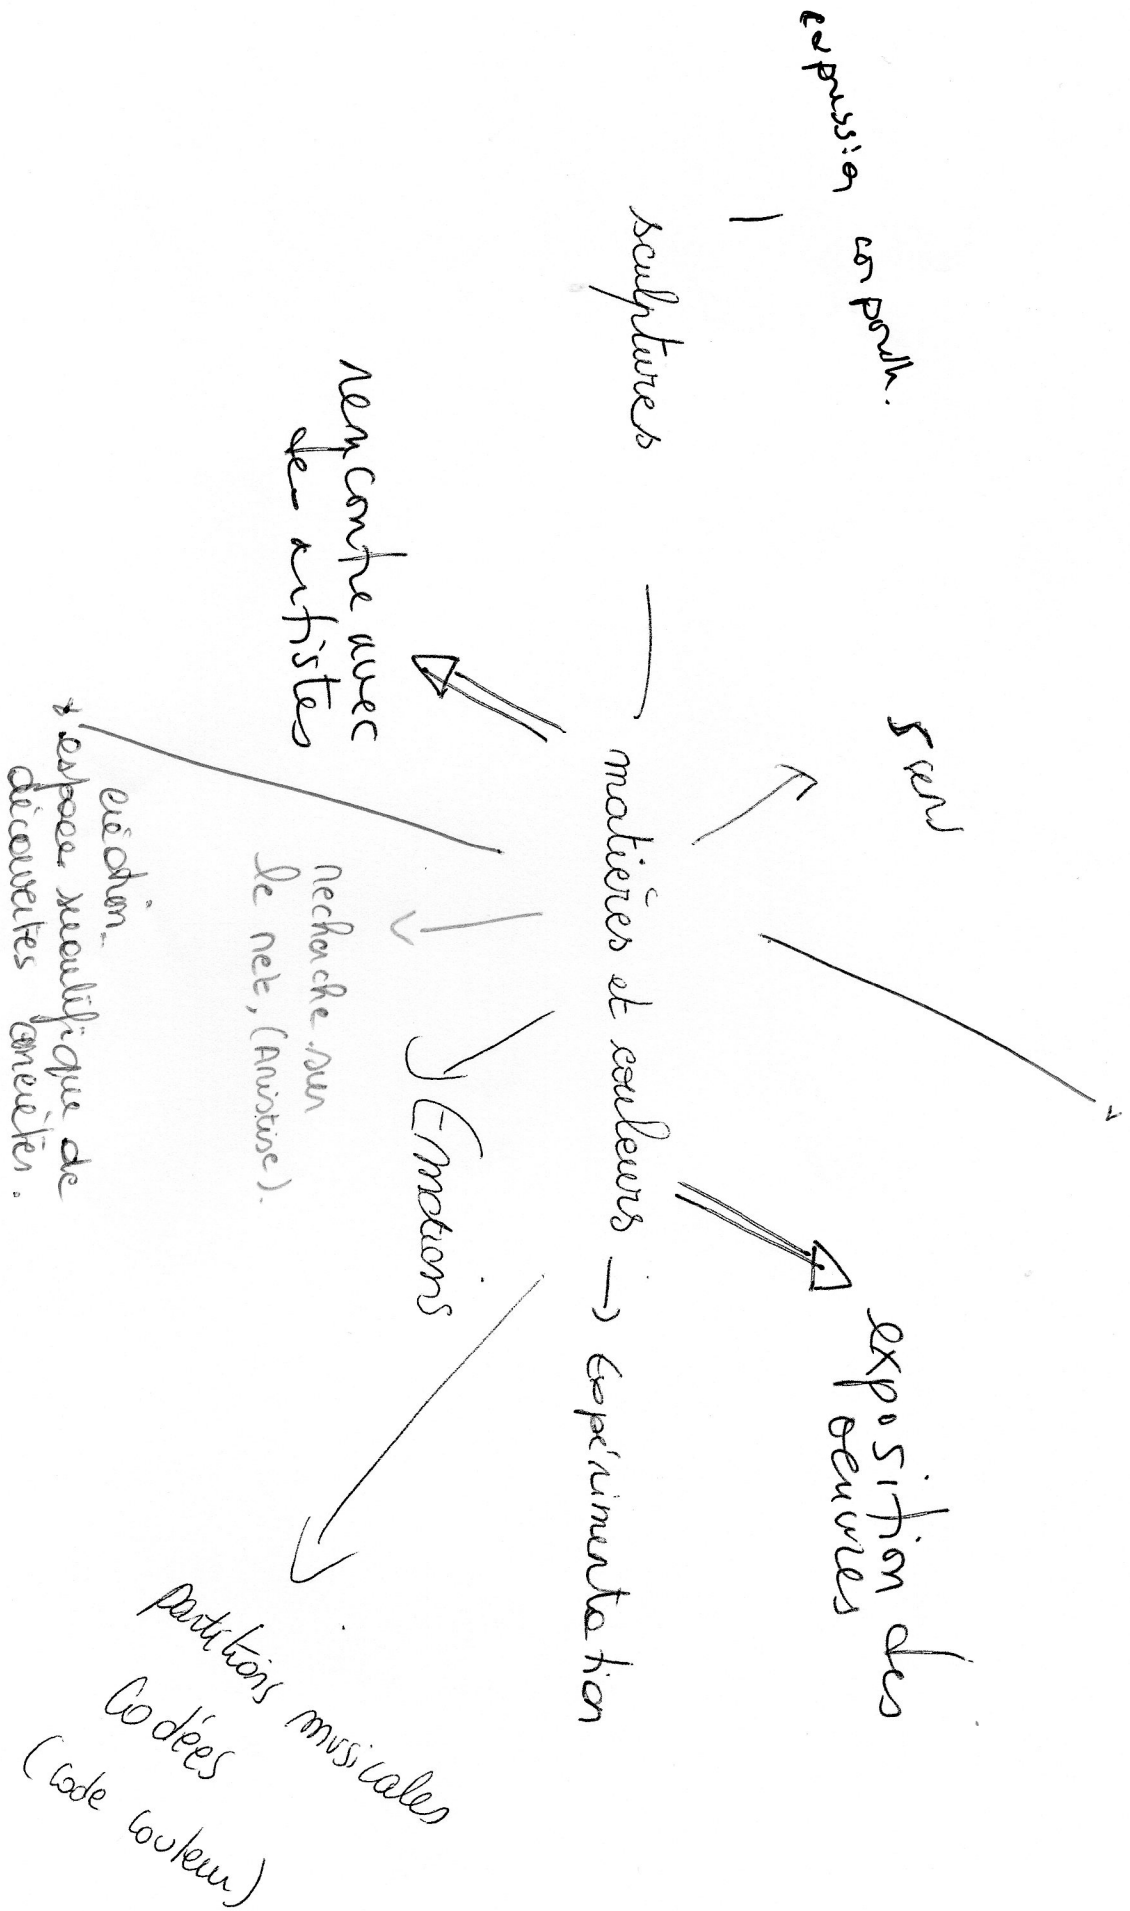 expression corporelle.
sculptures
5 sens
exposition des
oeuvres
matières et couleurs → Expérimentation
rencontre avec
des artistes
Emotions
recherche sur
le net, (Artistise).
création
espace scientifique de
découvertes concrètes.
partitions musicales
Codées
(code couleur)